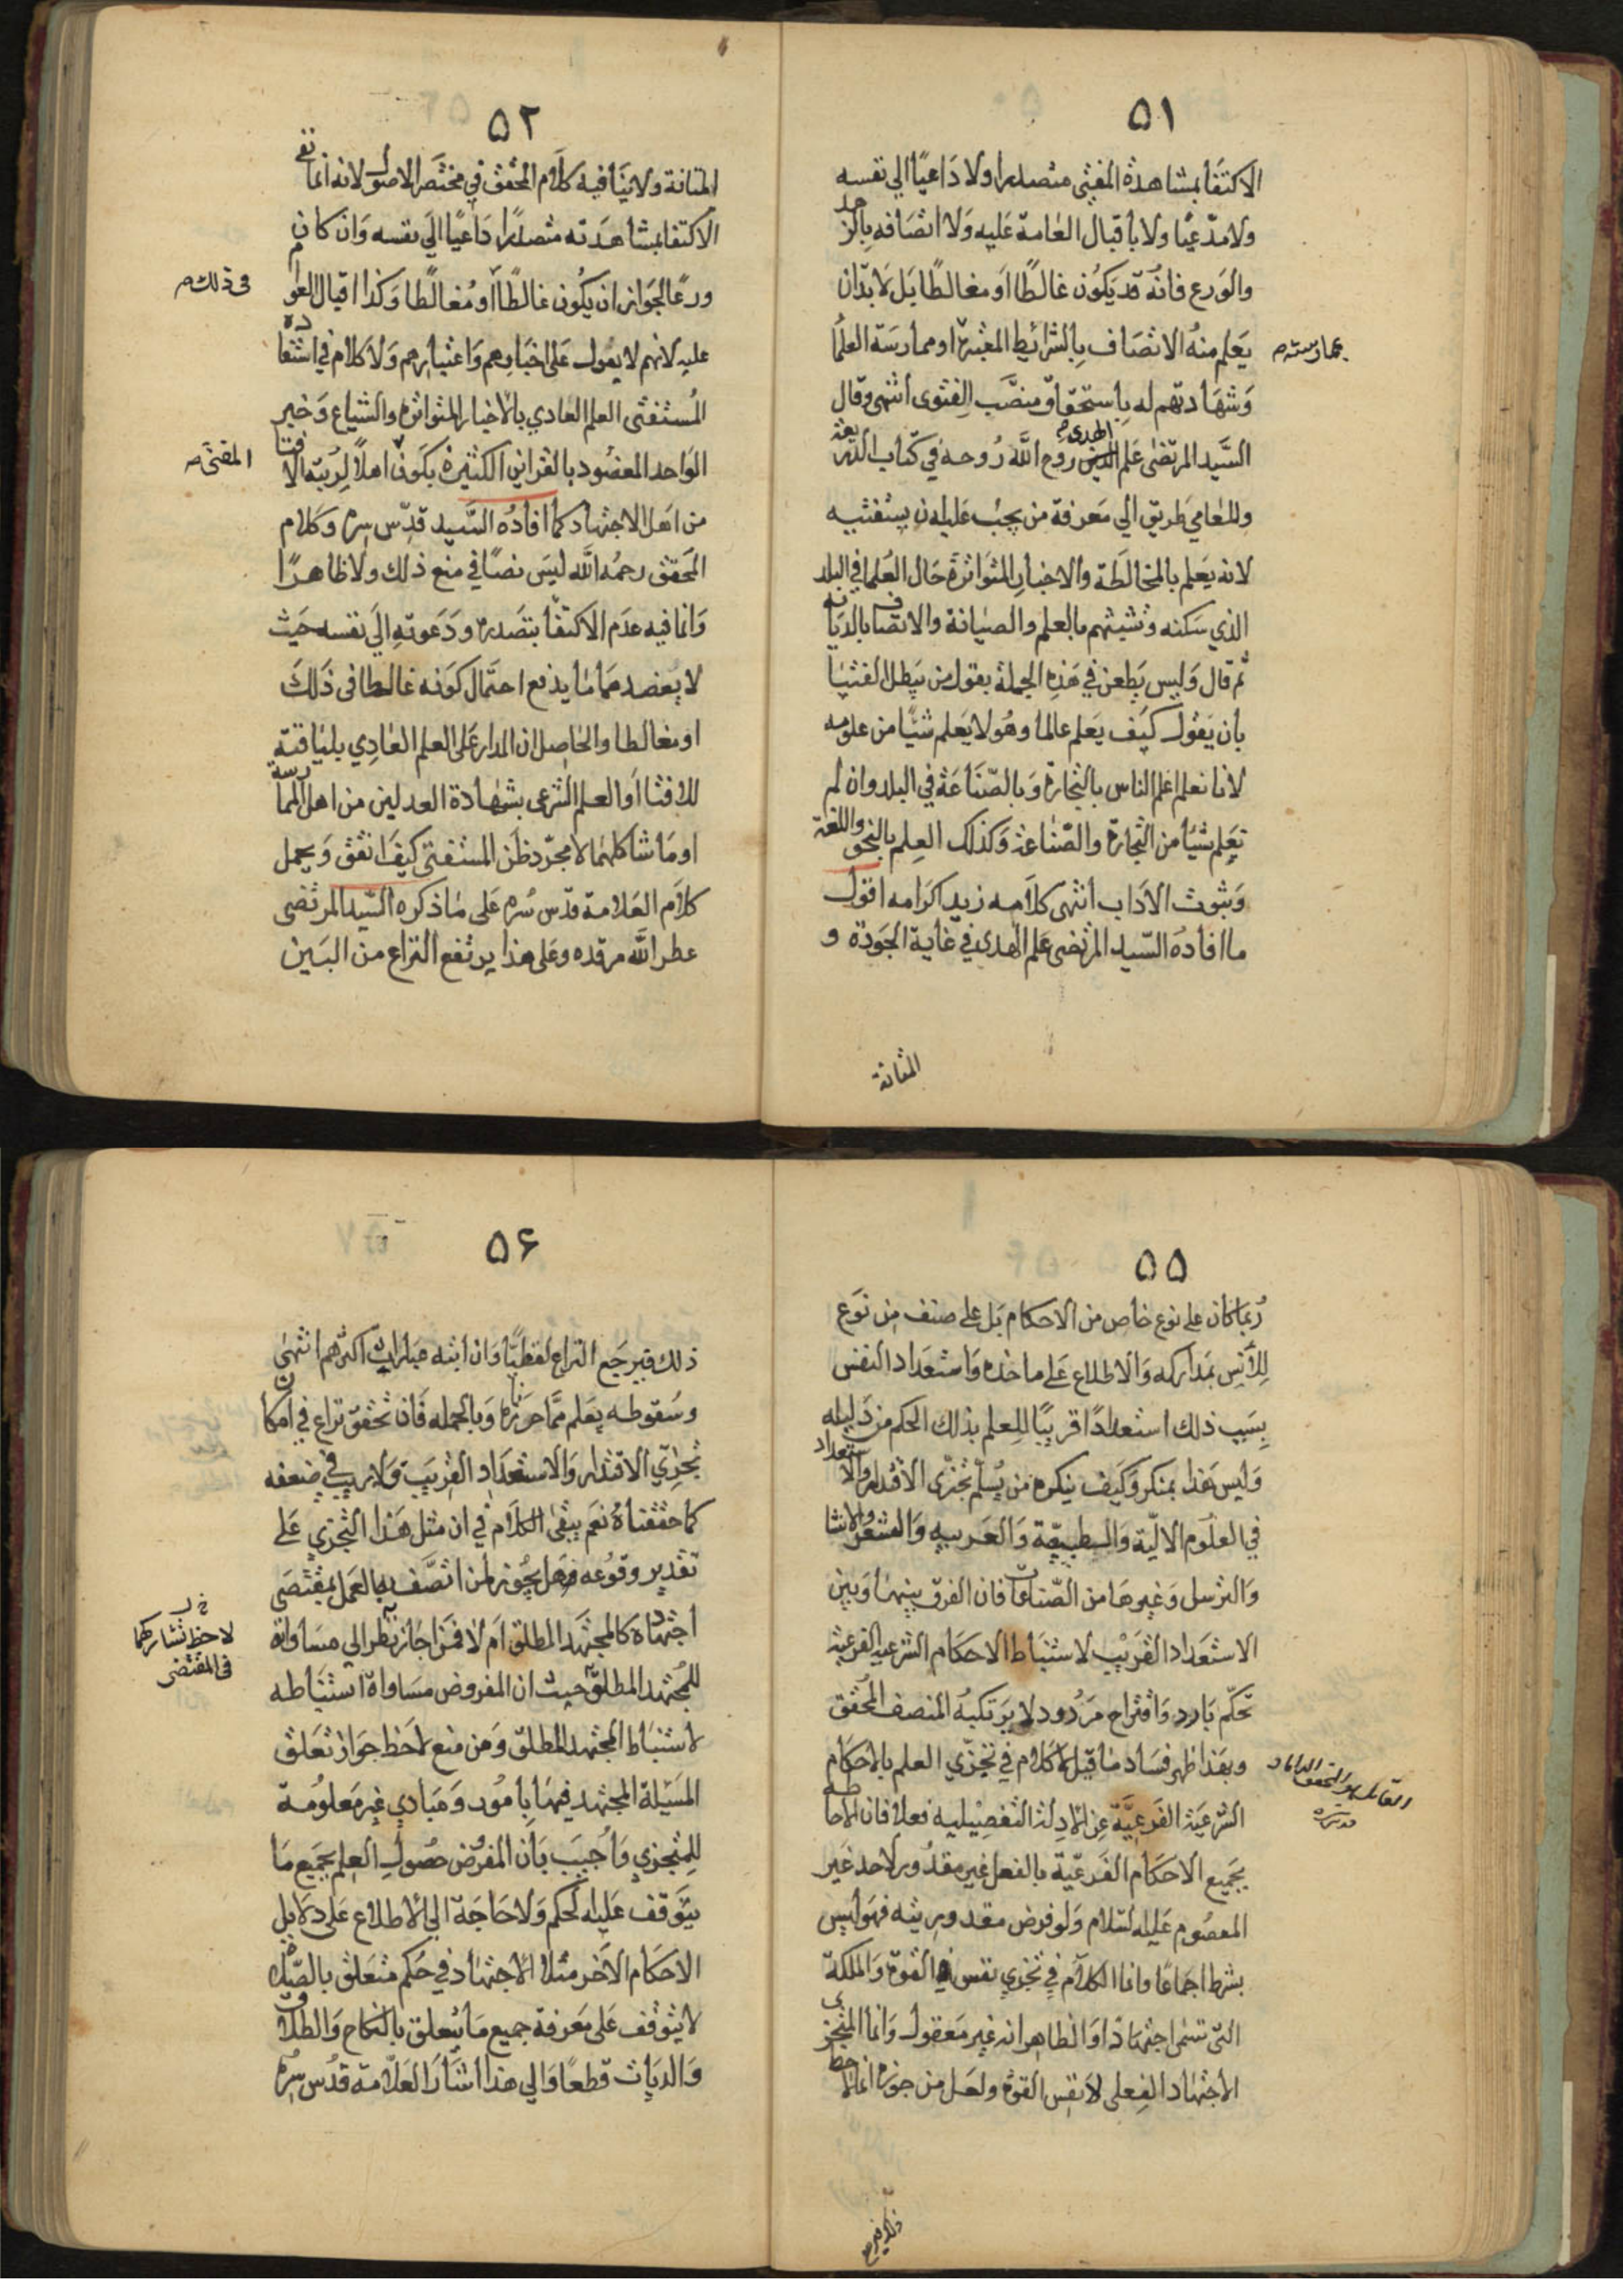 ٥١
الاكتفا بمشاهدة المفتي متصدرا ولا داعيًا الي نفسه
ولا مدّعيًا ولا باقبال العامة عليه ولا اتصافه بالزهد
والورع فانه قد يكون غالطًا او مغالطًا بل لا بدّ ان
يعلم منه الاتصاف بالشرائط المعتبرة او ممارسة العلما
بممارسته م
وشهادتهم له باستحقاق منصَب الفتوى انتهى وقال
السَّيد المرتضى علم الهدى روح الله روحه في كتاب الذريعة
وللعامي طريق الي معرفة من يجب عليه ان يستفتيه
لانه يعلم بالمخالطة والاخبار المتواترة حال العُلما في البلد
الذي سكنه ورتبتهم بالعلم والصيانة والاتصاف بالديانه
ثم قال وليس يطعن في هذه الجملة بقول من يبطل الفتيا
بان يقول كيف يعلم عالما وهو لا يعلم شيًا من علومه
لانا نعلم اعلم الناس بالتجارة وبالصّناعة في البلد وان لم
نعلم شيًا من التجارة والصّناعة وكذلك العلم بالنحو واللغة
وبثوث الاداب انتهى كلامه زيد اكرامه اقول
ما افاده السّيد المرتضى علم الهدى في غاية الجودة و
المتانة
٥٢
المتانة ولا ينافيه كلام المحقق في مختصر الاصول لانه انما نفى
الاكتفا بمشاهدته متصدرًا داعيًا الي نفسه وان كان
ورعًا لجواز ان يكون غالطًا او مُغالطًا وكذا اقبال العوام
فى ذلك م
عليه لانهم لا يعول على اخبارهم واعتبارهم ولا كلام في استفاده
المُستفتى العلم العادي بالاخبار المتواتره والشياع وخبر
الواحد المعضود بالقراين الكثيرة بكونه اهلًا لرتبة الافتا
المفتى م
من اهل الاجتهاد كما افاده السَّيد قدّس سره وكلام
المحقق رحمه الله ليس نصًا في منع ذلك ولا ظاهرًا
وانما فيه عدم الاكتفا بتصدره ودعوته الي نفسه حيث
لا يعضد مما ما يدفع احتمال كونه غالطا فى ذلك
او مغالطا والحاصل ان المدار على العلم العادي بلياقته
للافتا او العلم الشرعى بشهادة العدلين من اهل الممارسة
او ما شاكلهما لا مجرّد ظن المستفتى كيف اتفق ويحمل
كلام العلامة قدّس سره على ما ذكره السّيد المرتضى
عطر الله مرقده وعلى هذا يرتفع النزاع من البين
٥٥
رُبما كان على نوع خاص من الاحكام بل على صنف من نوع
للأنس بمداركه والاطلاع على ماخذه واستعداد النفس
بسبب ذلك استعدادًا قريبًا للعلم بذلك الحكم من دليله
وليس هذا بمنكر وكيف ينكره من يُسلّم تجزى الاقتدار والاستعداد
في العلوم الالية والطبيعة والعربيه والشعر والانشا
والترسل وغيرها من الصّناعات فان الفرق بينها وبين
الاستعداد القريب لاستنباط الاحكام الشرعية الفرعية
تحكّم بارد واقتراح مردود لا يرتكبه المنصف المحقق
وبهذا ظهر فساد ما قيل لا كلام في تجزّي العلم بالاحكام
القائل هو المحقق الداماد قدس سره
الشرعية الفرعيَّة عن الادلة التفصيليه فعلا فان الاحاطه
بجميع الاحكام الفرعيّة بالفعل غير مقدُور لاحد غير
المعصُوم عليه السّلام ولو فرض مقدوريته فهو ليس
بشرط اجماعًا وانما الكلام في تجزي نفس القوة والملكة
التى تسمى اجتهادًا والظاهر انه غير معقول وانما المتجزى
الاجتهاد الفعلى لا نفس القوة ولعل من جوزه انما لاحظ
ذلك فيرجع
٥٦
ذلك فيرجع النزاع لفظيًا وان ابته عبارات اكثرهم انتهى
وسقوطه يعلم ممّا حررناه وبالجمله فان تحقق نزاع في امكان
تجزّي الاقتدار والاستعداد القريب ولا ريب في ضعفه
كما حققناهُ نعم يبقى الكلام في ان مثل هذا التجزي على
تقدير وقوعه فهل يجوز لمن اتصَّف به العمل بمقتضى
اجتهاده كالمجتهد المطلق ام لا فمن اجاز نظر الي مساواته
خ ل
لاحظ تشاركهما
فى المقتضى
للمجتهد المطلق حيث ان المفروض مساواة استنباطه
لاستنباط المجتهد المطلق ومن منع لاحظ جواز تعلق
المسَيلة المجتهد فيها بامُور ومبادي غير معلومة
للمتجزي واُجيب بان المفروض حصول العلم بجميع ما
يتوقف عليه الحكم ولا حاجة الي الاطلاع على دلايل
الاحكام الاخر مثلا الاجتهاد في حكم متعلق بالصلاة
لا يتوقف على معرفة جميع ما يتعلق بالنكاح والطلاق
والديات قطعًا والي هذا اشار العلّامة قدُس سره